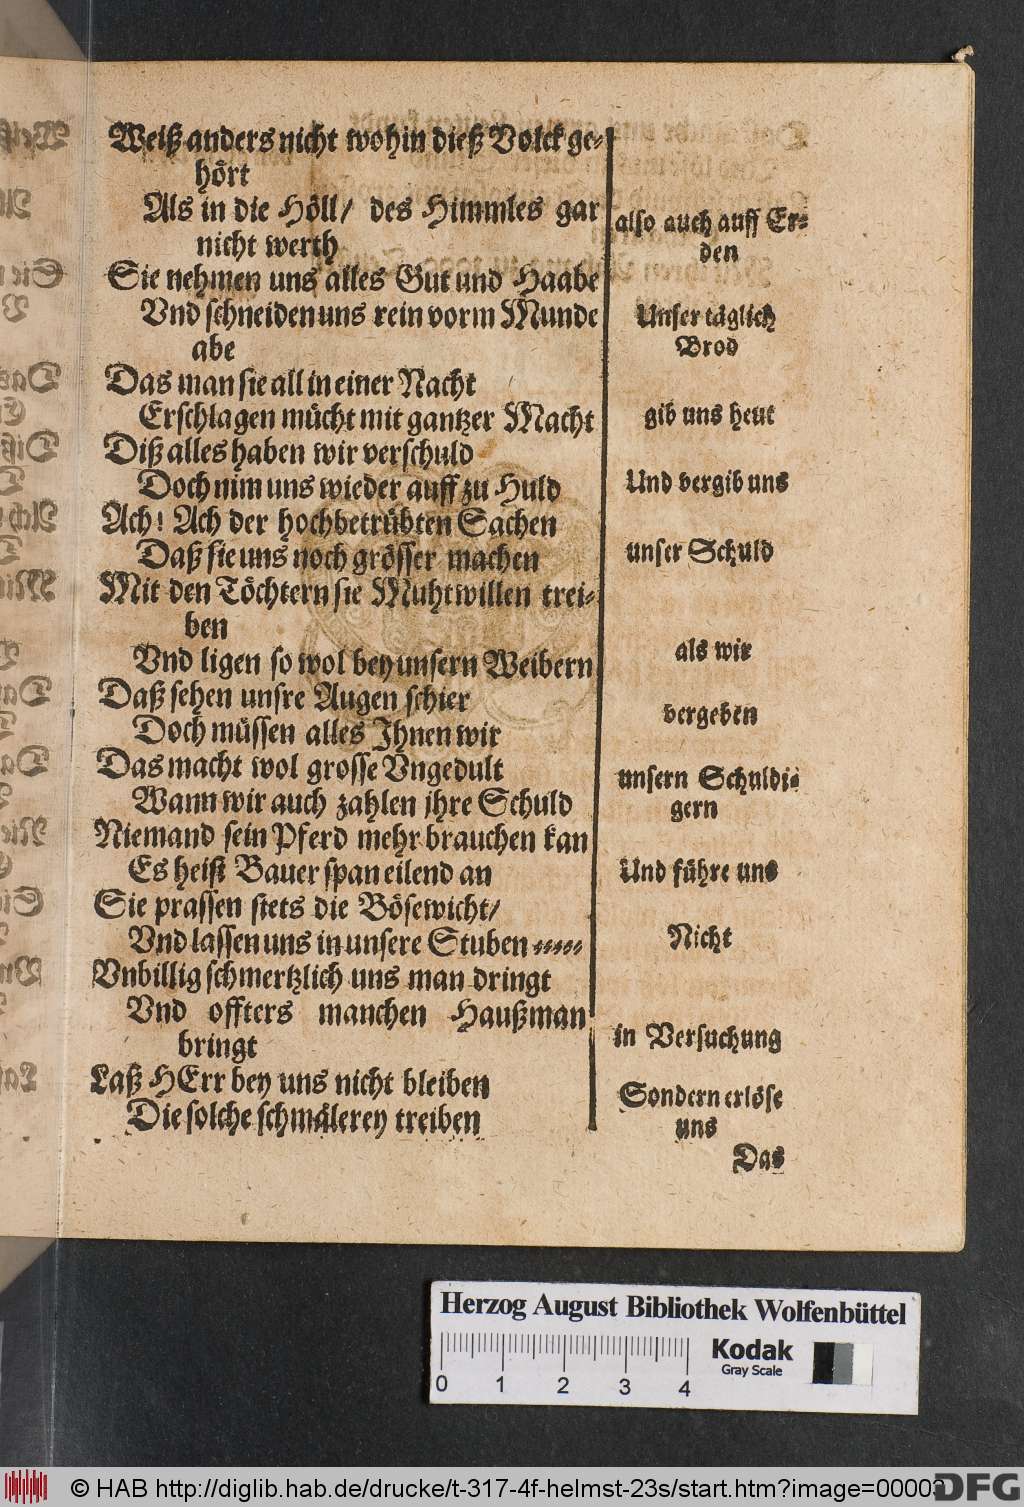 Weiß anders nicht wohin dieß Volck ge-
hört
Als in die Höll/ des Himmles gar
nicht werth
Sie nehmen uns alles Gut und Haabe
Vnd schneiden uns rein vorm Munde
abe
Das man sie all in einer Nacht
Erschlagen mücht mit gantzer Macht
Diß alles haben wir verschuld
Doch nim uns wieder auff zu Huld
Ach! Ach der hochbetrübten Sachen
Daß sie uns noch grösser machen
Mit den Töchtern sie Muhtwillen trei-
ben
Vnd ligen so wol bey unsern Weibern
Daß sehen unsre Augen schier
Doch müssen alles Ihnen wir
Das macht wol grosse Vngedult
Wann wir auch zahlen ihre Schuld
Niemand sein Pferd mehr brauchen kan
Es heist Bauer span eilend an
Sie prassen stets die Bösewicht/
Vnd lassen uns in unsere Stuben -----
Vnbillig schmertzlich uns man dringt
Vnd offters manchen Haußman
bringt
Laß HErr bey uns nicht bleiben
Die solche schmälerey treiben
also auch auff Er-
den
Unser täglich
Brod
gib uns heut
Und vergib uns
unser Schuld
als wir
vergeben
unsern Schuldi-
gern
Und führe uns
Nicht
in Versuchung
Sondern erlöse
uns
Das
Herzog August Bibliothek Wolfenbüttel
Kodak
Gray Scale
0 1 2 3 4
© HAB http://diglib.hab.de/drucke/t-317-4f-helmst-23s/start.htm?image=00003
DFG